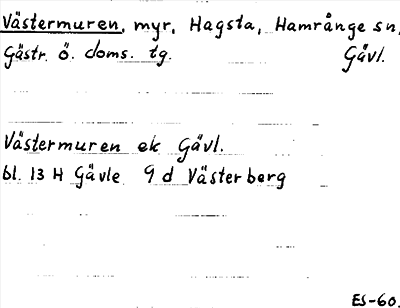 Västermuren, myr, Hagsta, Hamrånge sn,
Gästr. ö. doms. tg. Gävl.
Västermuren ek Gävl.
bl. 13 H Gävle 9 d Västerberg
ES-60.